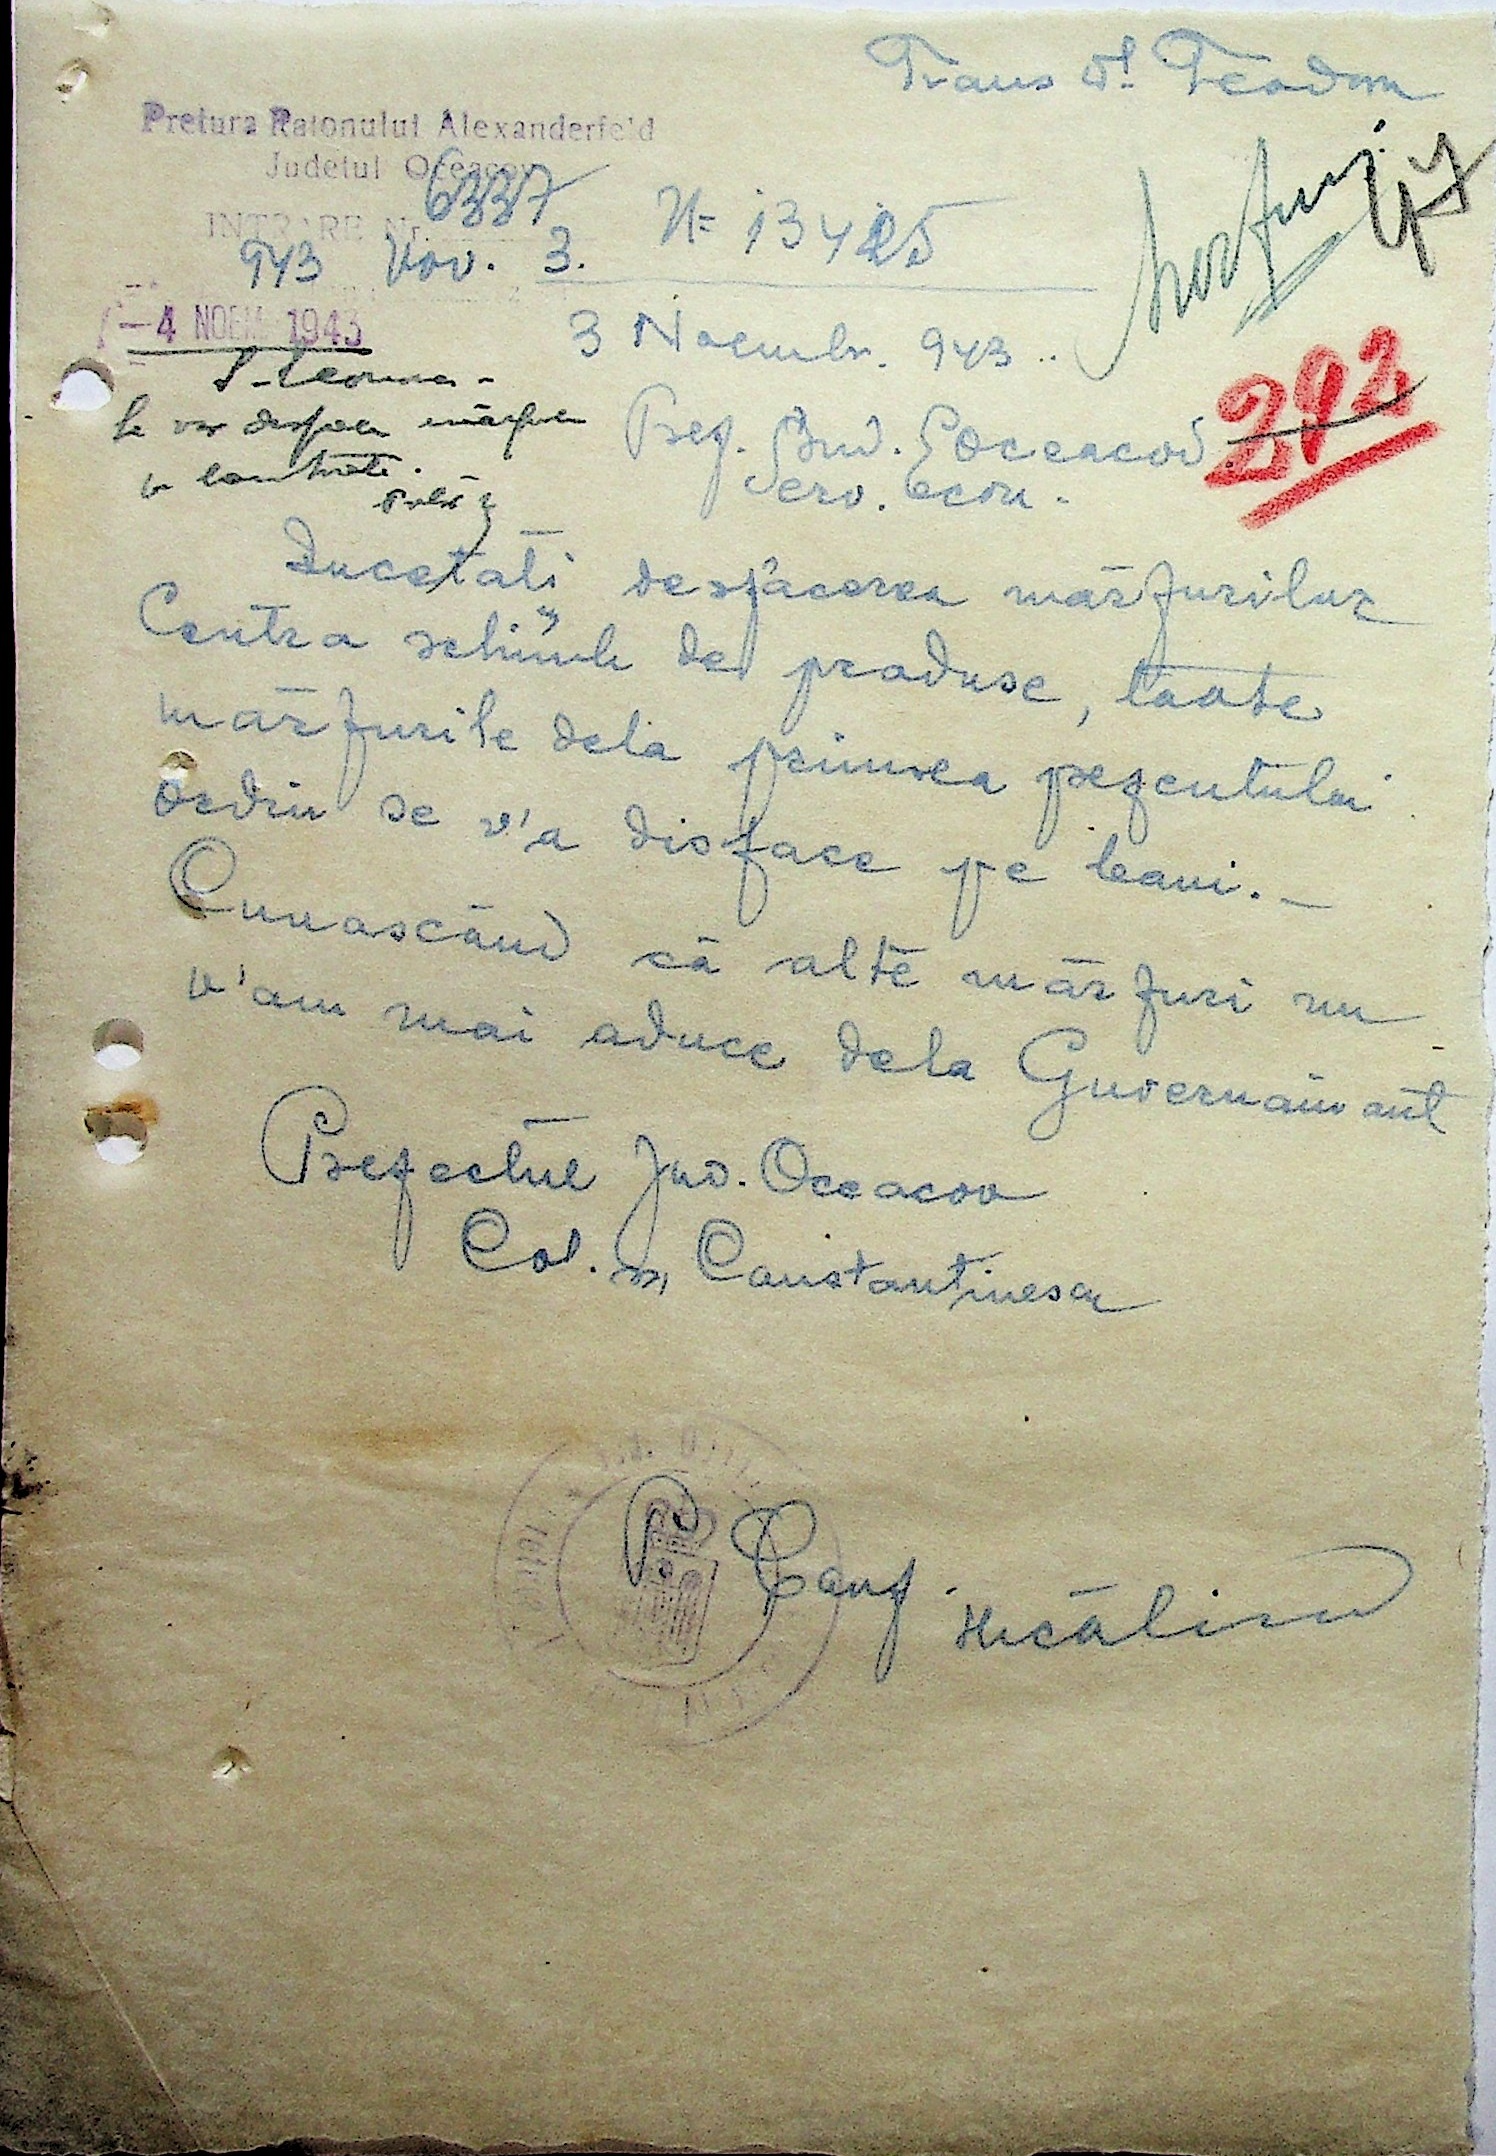 Trans dl. Teodoru
Pretura Raionului Alexanderfeld
Judetul Oceacov
INTRARE Nr. 6337
943 Nov. 3.
№ 13425
Marfuri
47
-4 NOEM 1943
3 Noembr. 943
292
S. Econom.
Se vor desface
Pref. Jud. Oceacov
Serv. econ.
Incetati desfacerea mărfurilor
Contra schimb de produse, toate
mărfurile dela primirea prezentului
ordin se v'a disface pe bani.-
Cunoscând că alte mărfuri nu
v'am mai aduce dela Guvernământ
Prefectul Jud. Oceacov
Col. ss, Constantinescu
P. Conf.